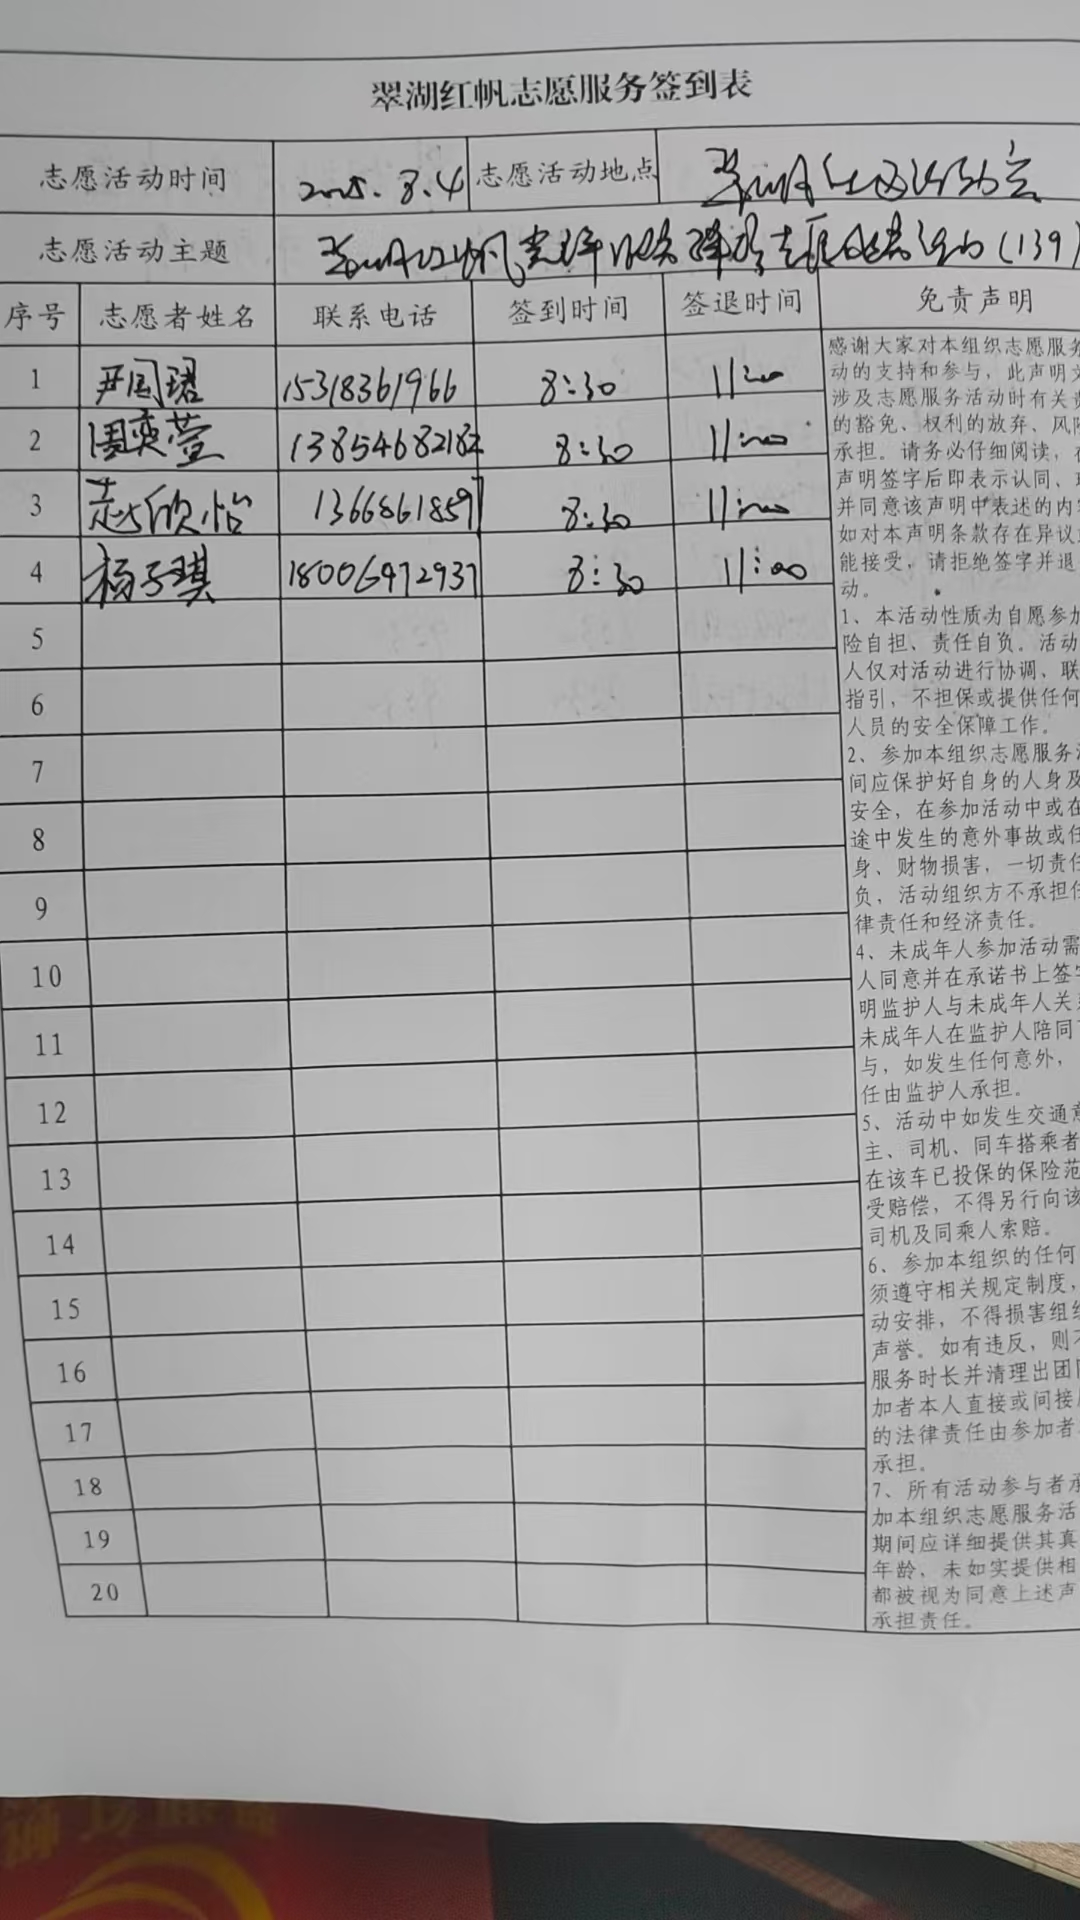 翠湖红帆志愿服务签到表
志愿活动时间 2025.8.4 志愿活动地点 翠湖社区活动室
志愿活动主题 翠湖红帆 志愿 (139)
序号 志愿者姓名 联系电话 签到时间 签退时间 免责声明
1 尹国珺 15318361966 8:30 11:00
2 周奕萱 13854682182 8:30 11:00
3 赵欣怡 13668618597 8:30 11:00
4 杨子琪 18006472937 8:30 11:00
5
6
7
8
9
10
11
12
13
14
15
16
17
18
19
20
感谢大家对本组织志愿服务
动的支持和参与，此声明文
涉及志愿服务活动时有关责
的豁免、权利的放弃、风险
承担。请务必仔细阅读，在
声明签字后即表示认同、理
并同意该声明中表述的内容
如对本声明条款存在异议或
能接受，请拒绝签字并退
动。
1、本活动性质为自愿参加
险自担、责任自负。活动
人仅对活动进行协调、联
指引，不担保或提供任何
人员的安全保障工作。
2、参加本组织志愿服务活
间应保护好自身的人身及
安全，在参加活动中或在
途中发生的意外事故或任
身、财物损害，一切责任
负，活动组织方不承担任
律责任和经济责任。
4、未成年人参加活动需
人同意并在承诺书上签字
明监护人与未成年人关系
未成年人在监护人陪同下
与，如发生任何意外，
任由监护人承担。
5、活动中如发生交通意
主、司机、同车搭乘者
在该车已投保的保险范
受赔偿，不得另行向该
司机及同乘人索赔。
6、参加本组织的任何
须遵守相关规定制度，
动安排，不得损害组织
声誉。如有违反，则不
服务时长并清理出团队
加者本人直接或间接
的法律责任由参加者
承担。
7、所有活动参与者承
加本组织志愿服务活
期间应详细提供其真
年龄、未如实提供相
都被视为同意上述声
承担责任。